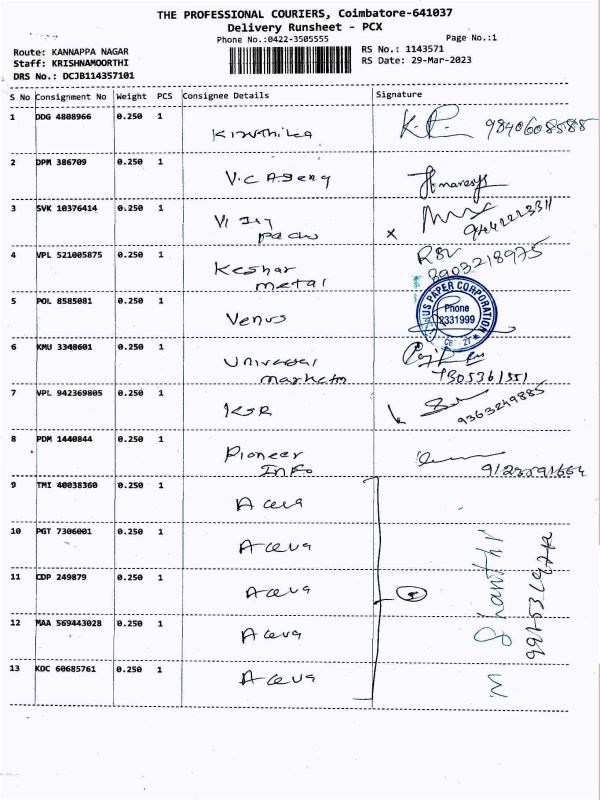 THE PROFESSIONAL COURIERS, Coimbatore-641037
Delivery Runsheet - PCX
Phone No.:0422-3505555
Page No.:1
Route: KANNAPPA NAGAR
RS No.: 1143571
Staff: KRISHNAMOORTHI
RS Date: 29-Mar-2023
DRS No.: DCJB114357101
S No Consignment No Weight PCS Consignee Details Signature
1 DDG 4808966 0.250 1
Kiruthika K.P. 9840608588
2 DPM 386709 0.250 1
V.C Agency
3 SVK 10376414 0.250 1
x 9442223311
4 VPL 521005875 0.250 1
Keshar RSV
metal 8903218975
5 POL 8585081 0.250 1
Venus
US PAPER CORPORATION
Phone
2331999
CB 27
6 KMU 3348601 0.250 1
Universal
markets 7305361551
7 VPL 942369805 0.250 1
KSR 9363249885
8 PDM 1440844 0.250 1
Pioneer
Info
9 TMI 40038360 0.250 1
10 PGT 7306001 0.250 1
11 CDP 249879 0.250 1
5
12 MAA 569443028 0.250 1
13 KOC 60685761 0.250 1
M Shanthi